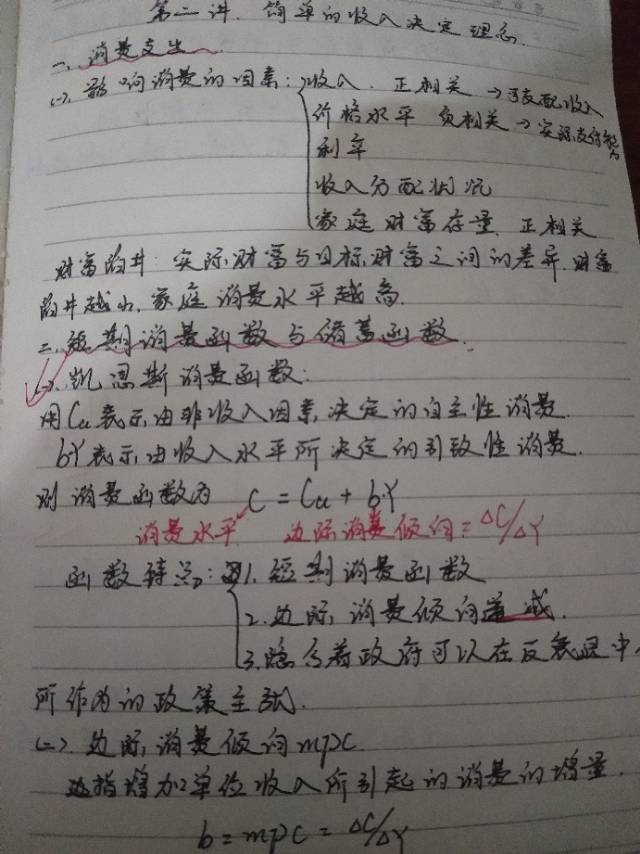 第二讲. 简单的收入决定理念.
一、消费支出
(一). 影响消费的因素: 收入. 正相关 →可支配收入
价格水平 负相关 →实际支付能力
利率
收入分配状况
家庭财富存量. 正相关
财富的井: 实际财富与目标财富之间的差异. 财富
的井越小. 家庭消费水平越高.
二. 短期消费函数与储蓄函数.
(一). 凯恩斯消费函数:
用Ca表示由非收入因素决定的自主性消费
bY表示由收入水平所决定的引致性消费.
则消费函数为 C = Ca + b·Y
消费水平 边际消费倾向=ΔC/ΔY
函数特点: 1. 短期消费函数
2. 边际消费倾向递减.
3. 隐含着政府可以在反衰退中
所作为的政策主张.
(二). 边际消费倾向mpc
指增加单位收入所引起的消费的增量.
b = mpc = ΔC/ΔY